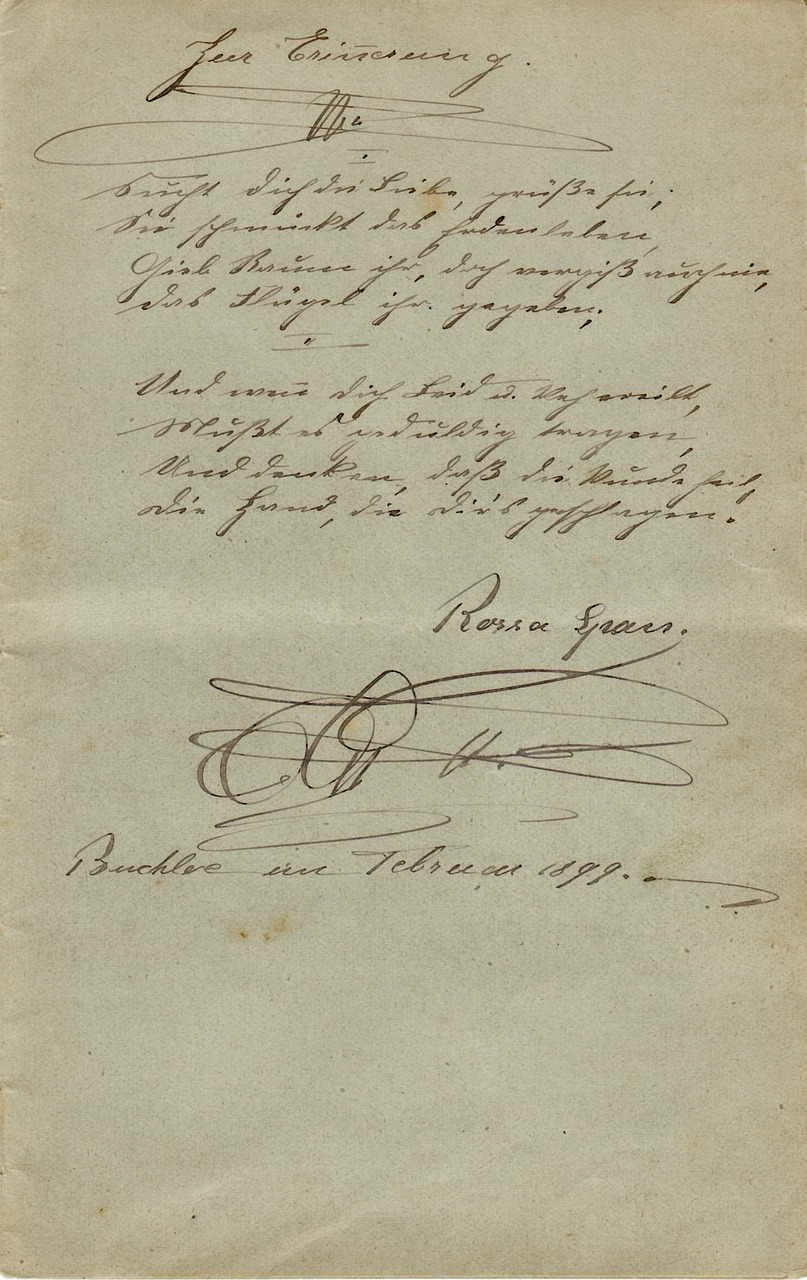 Zur Erin̄erung.
Sucht dich die Liebe, grüße sie;
Sie schmückt das Erdenleben,
Gieb Raum ihr, doch vergiß auch nie,
das Flügel ihr gegeben;
Und wen̄ dich Leid u. Weh ereilt,
Mußt es geduldig tragen,
Und denken, daß die Wunde heilt,
Die Hand, die dir's geschlagen.
Rossa
Buchloe im Februar 1899.